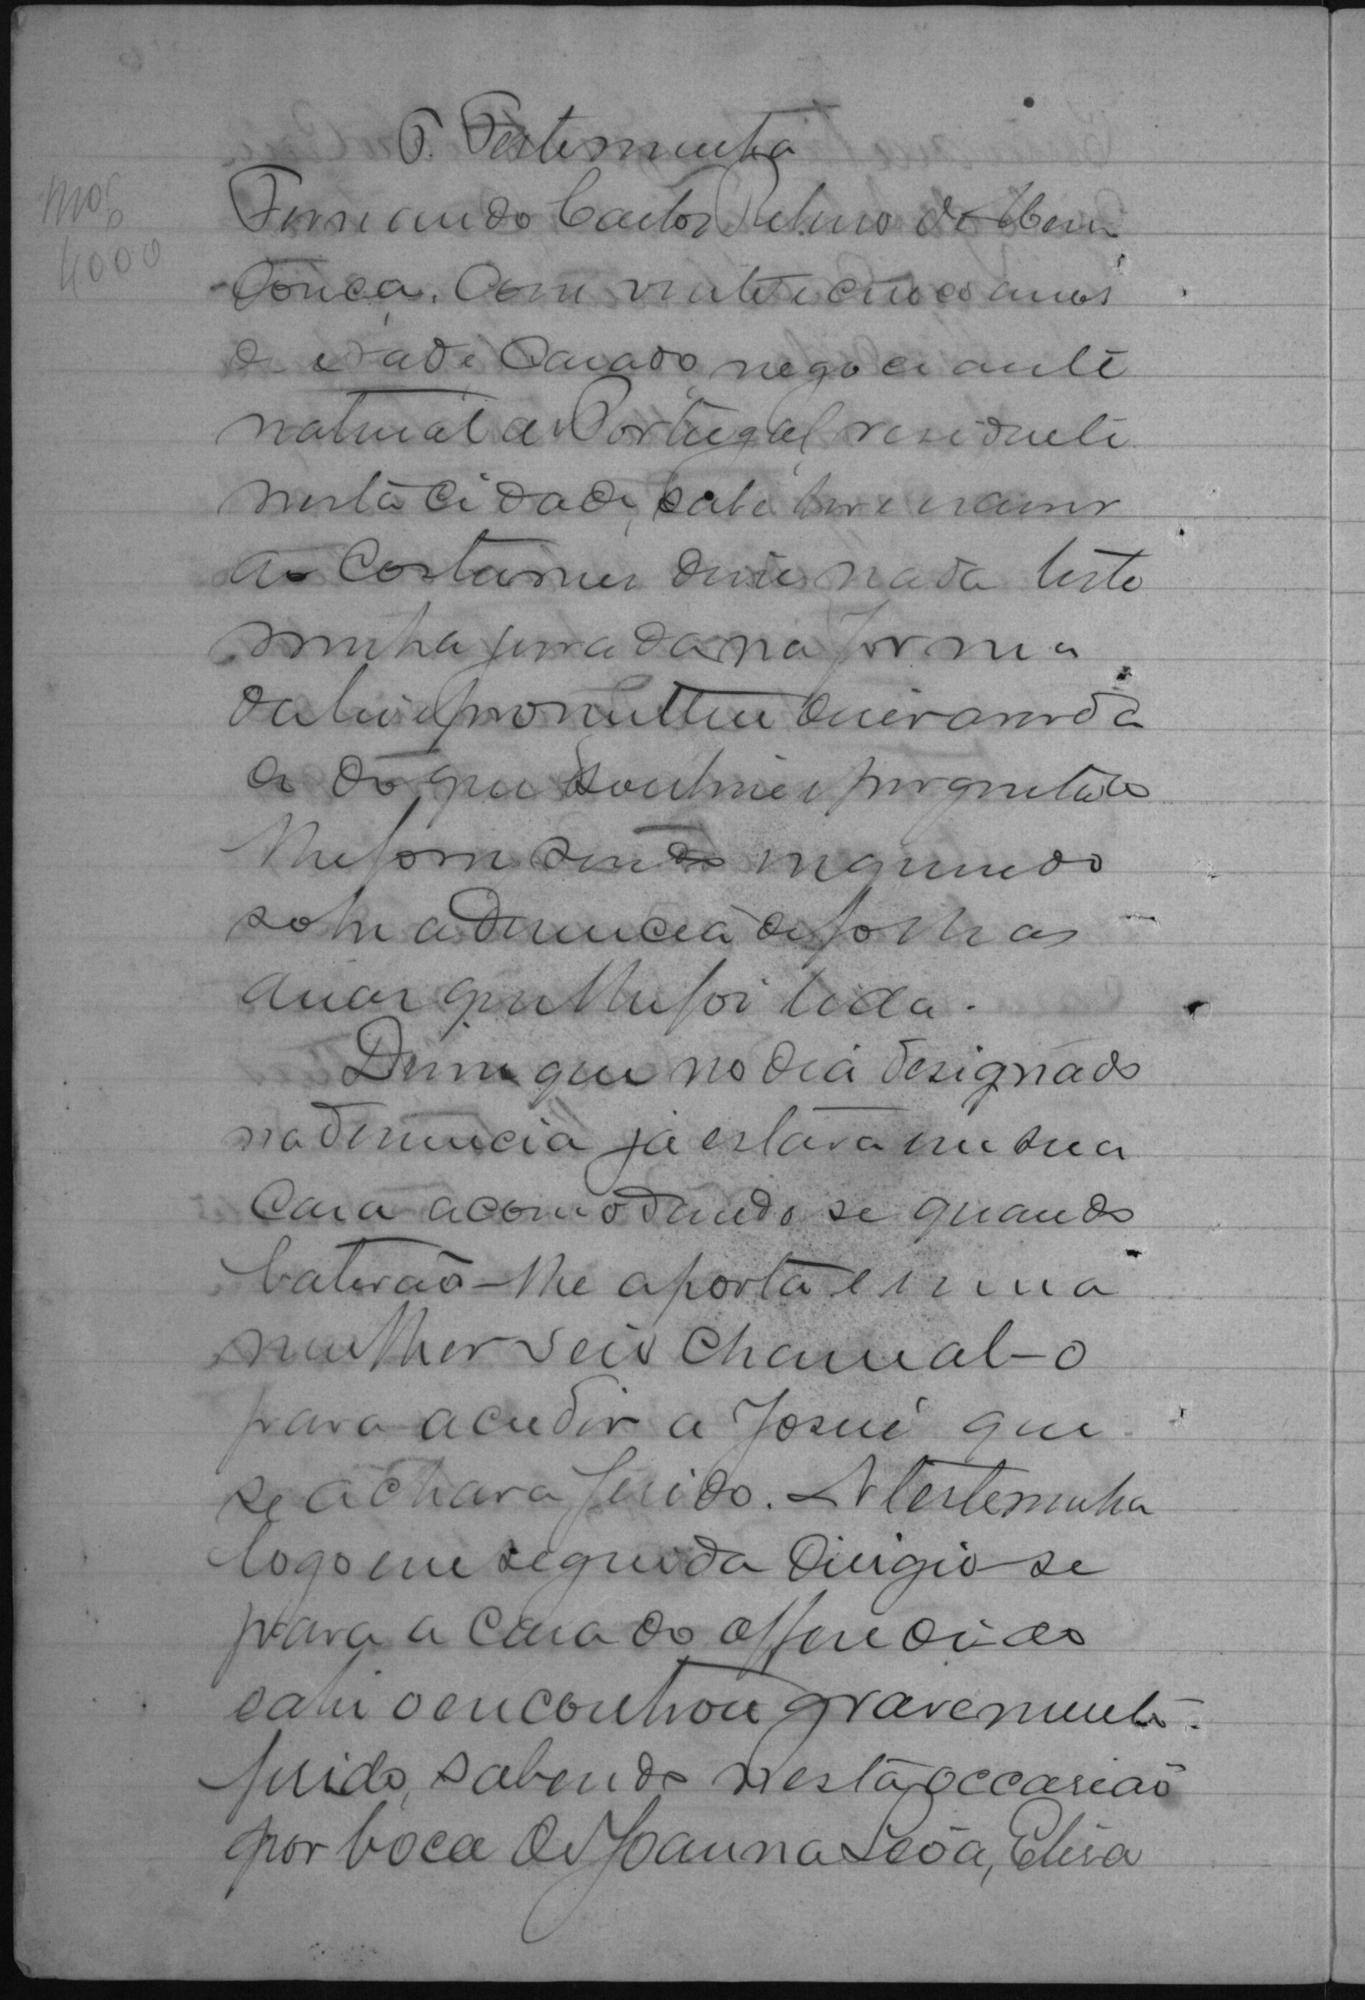 T. Testemunha
4000
Fernando Carlos de Men
donça. Com vinte e cinco annos
de idade Casado, negociante
natural de Portugal, residente
nesta cidade, sabe ler e escrever
aos Costumes disse nada teste
munha jurada na forma
da lei e prometteu dizer a verda
de do que soubesse e perguntado
lhe fosse sendo inquirido
sobre a denuncia de folhas
duas que lhe foi lida.
Disse que no dia designado
na denuncia ja estava em sua
casa acomodando se quando
baterão-lhe a porta e uma
mulher veio chamal-o
para acudir a Josué que
se achava ferido. A testemunha
logo em seguida dirigio-se
para a casa do offendido
e ahi o encontrou gravemente
ferido, sabendo nesta occasião
por boca de Joanna Leôa, Elisa